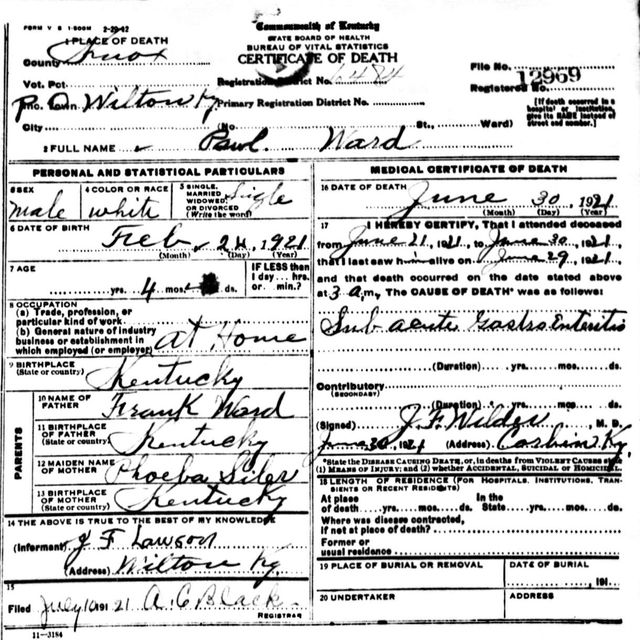 FORM V S 1-500M 2-29-12
Commonwealth of Kentucky
STATE BOARD OF HEALTH
BUREAU OF VITAL STATISTICS
CERTIFICATE OF DEATH
1 PLACE OF DEATH
County Knox
Vot. Pct
Registration District No. 6484
File No.
Registered No. 12969
P.O. Inc. Town Wilton Ky
Primary Registration District No.
City (No. St., Ward)
[If death occurred in a hospital or institution, give its NAME instead of street and number.]
2 FULL NAME Paul Ward
PERSONAL AND STATISTICAL PARTICULARS
3 SEX male
4 COLOR OR RACE white
5 SINGLE, MARRIED WIDOWED OR DIVORCED (Write the word) Sigle
6 DATE OF BIRTH Feb 24, 1921
(Month) (Day) (Year)
7 AGE yrs. 4 mos. ds.
IF LESS than 1 day... hrs. or min.?
8 OCCUPATION
(a) Trade, profession, or particular kind of work
(b) General nature of industry business or establishment in which employed (or employer) at Home
9 BIRTHPLACE (State or country) Kentucky
PARENTS
10 NAME OF FATHER Frank Ward
11 BIRTHPLACE OF FATHER (State or country) Kentucky
12 MAIDEN NAME OF MOTHER Phoeba Siler
13 BIRTHPLACE OF MOTHER (State or country) Kentucky
14 THE ABOVE IS TRUE TO THE BEST OF MY KNOWLEDGE
(Informant) J F Lawson
(Address) Wilton Ky.
15
Filed July 10 1921 A. C Black
REGISTRAR
11-3184
MEDICAL CERTIFICATE OF DEATH
16 DATE OF DEATH June 30, 1921
(Month) (Day) (Year)
17 I HEREBY CERTIFY, That I attended deceased
from June 21, 1921, to June 30, 1921,
that I last saw him alive on June 29, 1921,
and that death occurred on the date stated above
at 3 a,m, The CAUSE OF DEATH* was as follows:
Sub acute Gastro Enteritis
(Duration) yrs. mos. ds.
Contributory
(SECONDARY)
(Duration) yrs. mos. ds.
(Signed) J. F. Wilder M. D.
June 30, 1921 (Address) Corbin Ky.
*State the DISEASE CAUSING DEATH, or, in deaths from VIOLENT CAUSES state (1) MEANS OF INJURY; and (2) whether ACCIDENTAL, SUICIDAL or HOMICIDAL.
18 LENGTH OF RESIDENCE (FOR HOSPITALS, INSTITUTIONS, TRANSIENTS OR RECENT RESIDENTS)
At place of death yrs. mos. ds. In the State yrs. mos. ds.
Where was disease contracted, if not at place of death?
Former or usual residence
19 PLACE OF BURIAL OR REMOVAL
DATE OF BURIAL
, 191
20 UNDERTAKER
ADDRESS